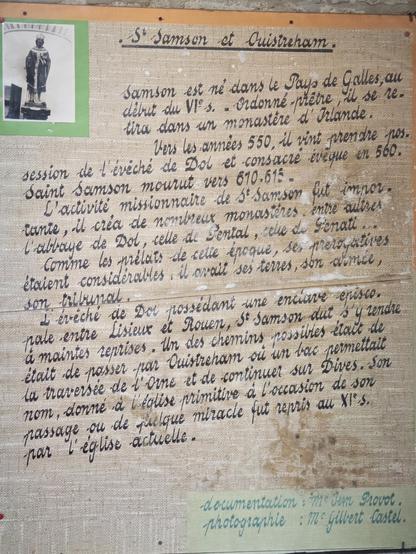 St Samson et Ouistreham.
Samson est né dans le Pays de Galles, au
début du VIe s. - Ordonné prêtre, il se re-
tira dans un monastère d'Irlande.
Vers les années 550, il vint prendre pos-
session de l'évêché de Dol et consacré évêque en 560.
Saint Samson mourut vers 610-615-
L'activité missionnaire de St Samson fut impor-
tante, il créa de nombreux monastères entre autres
l'abbaye de Dol, celle de Pental, celle de
Comme les prélats de cette époque, ses prérogatives
étaient considérables : il avait ses terres, son armée,
son tribunal.
L'évêché de Dol possédant une enclave épisco-
pale entre Lisieux et Rouen, St Samson dut s'y rendre
à maintes reprises. Un des chemins possibles était de
était de passer par Ouistreham où un bac permettait
la traversée de l'Orne et de continuer sur Dives. Son
nom, donné à l'église primitive à l'occasion de son
passage ou de quelque miracle fut repris au XIe s.
par l'église actuelle.
documentation : Me Provot.
photographie : Mr Gilbert Castel.